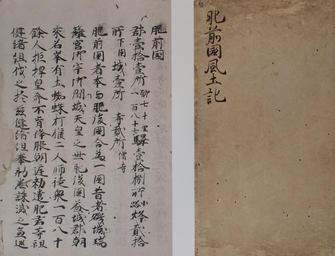 肥前國風土記
肥前國
郡壹拾壹所 郷七十 里一百八十七 驛壹拾捌所 小路 烽貳拾
所 下國 城壹所 寺貳所 僧寺
肥前國者本与肥後國合為一國昔者磯城瑞
籬宮御宇御間城天皇之世肥後國益城郡朝
来名峯有土蜘蛛打猴二人師徒衆一百八十
餘人拒捍皇命不肯降服朝廷勅遣肥君等祖
健緒組伐之於茲健緒組奉勅悉誅滅之兼巡